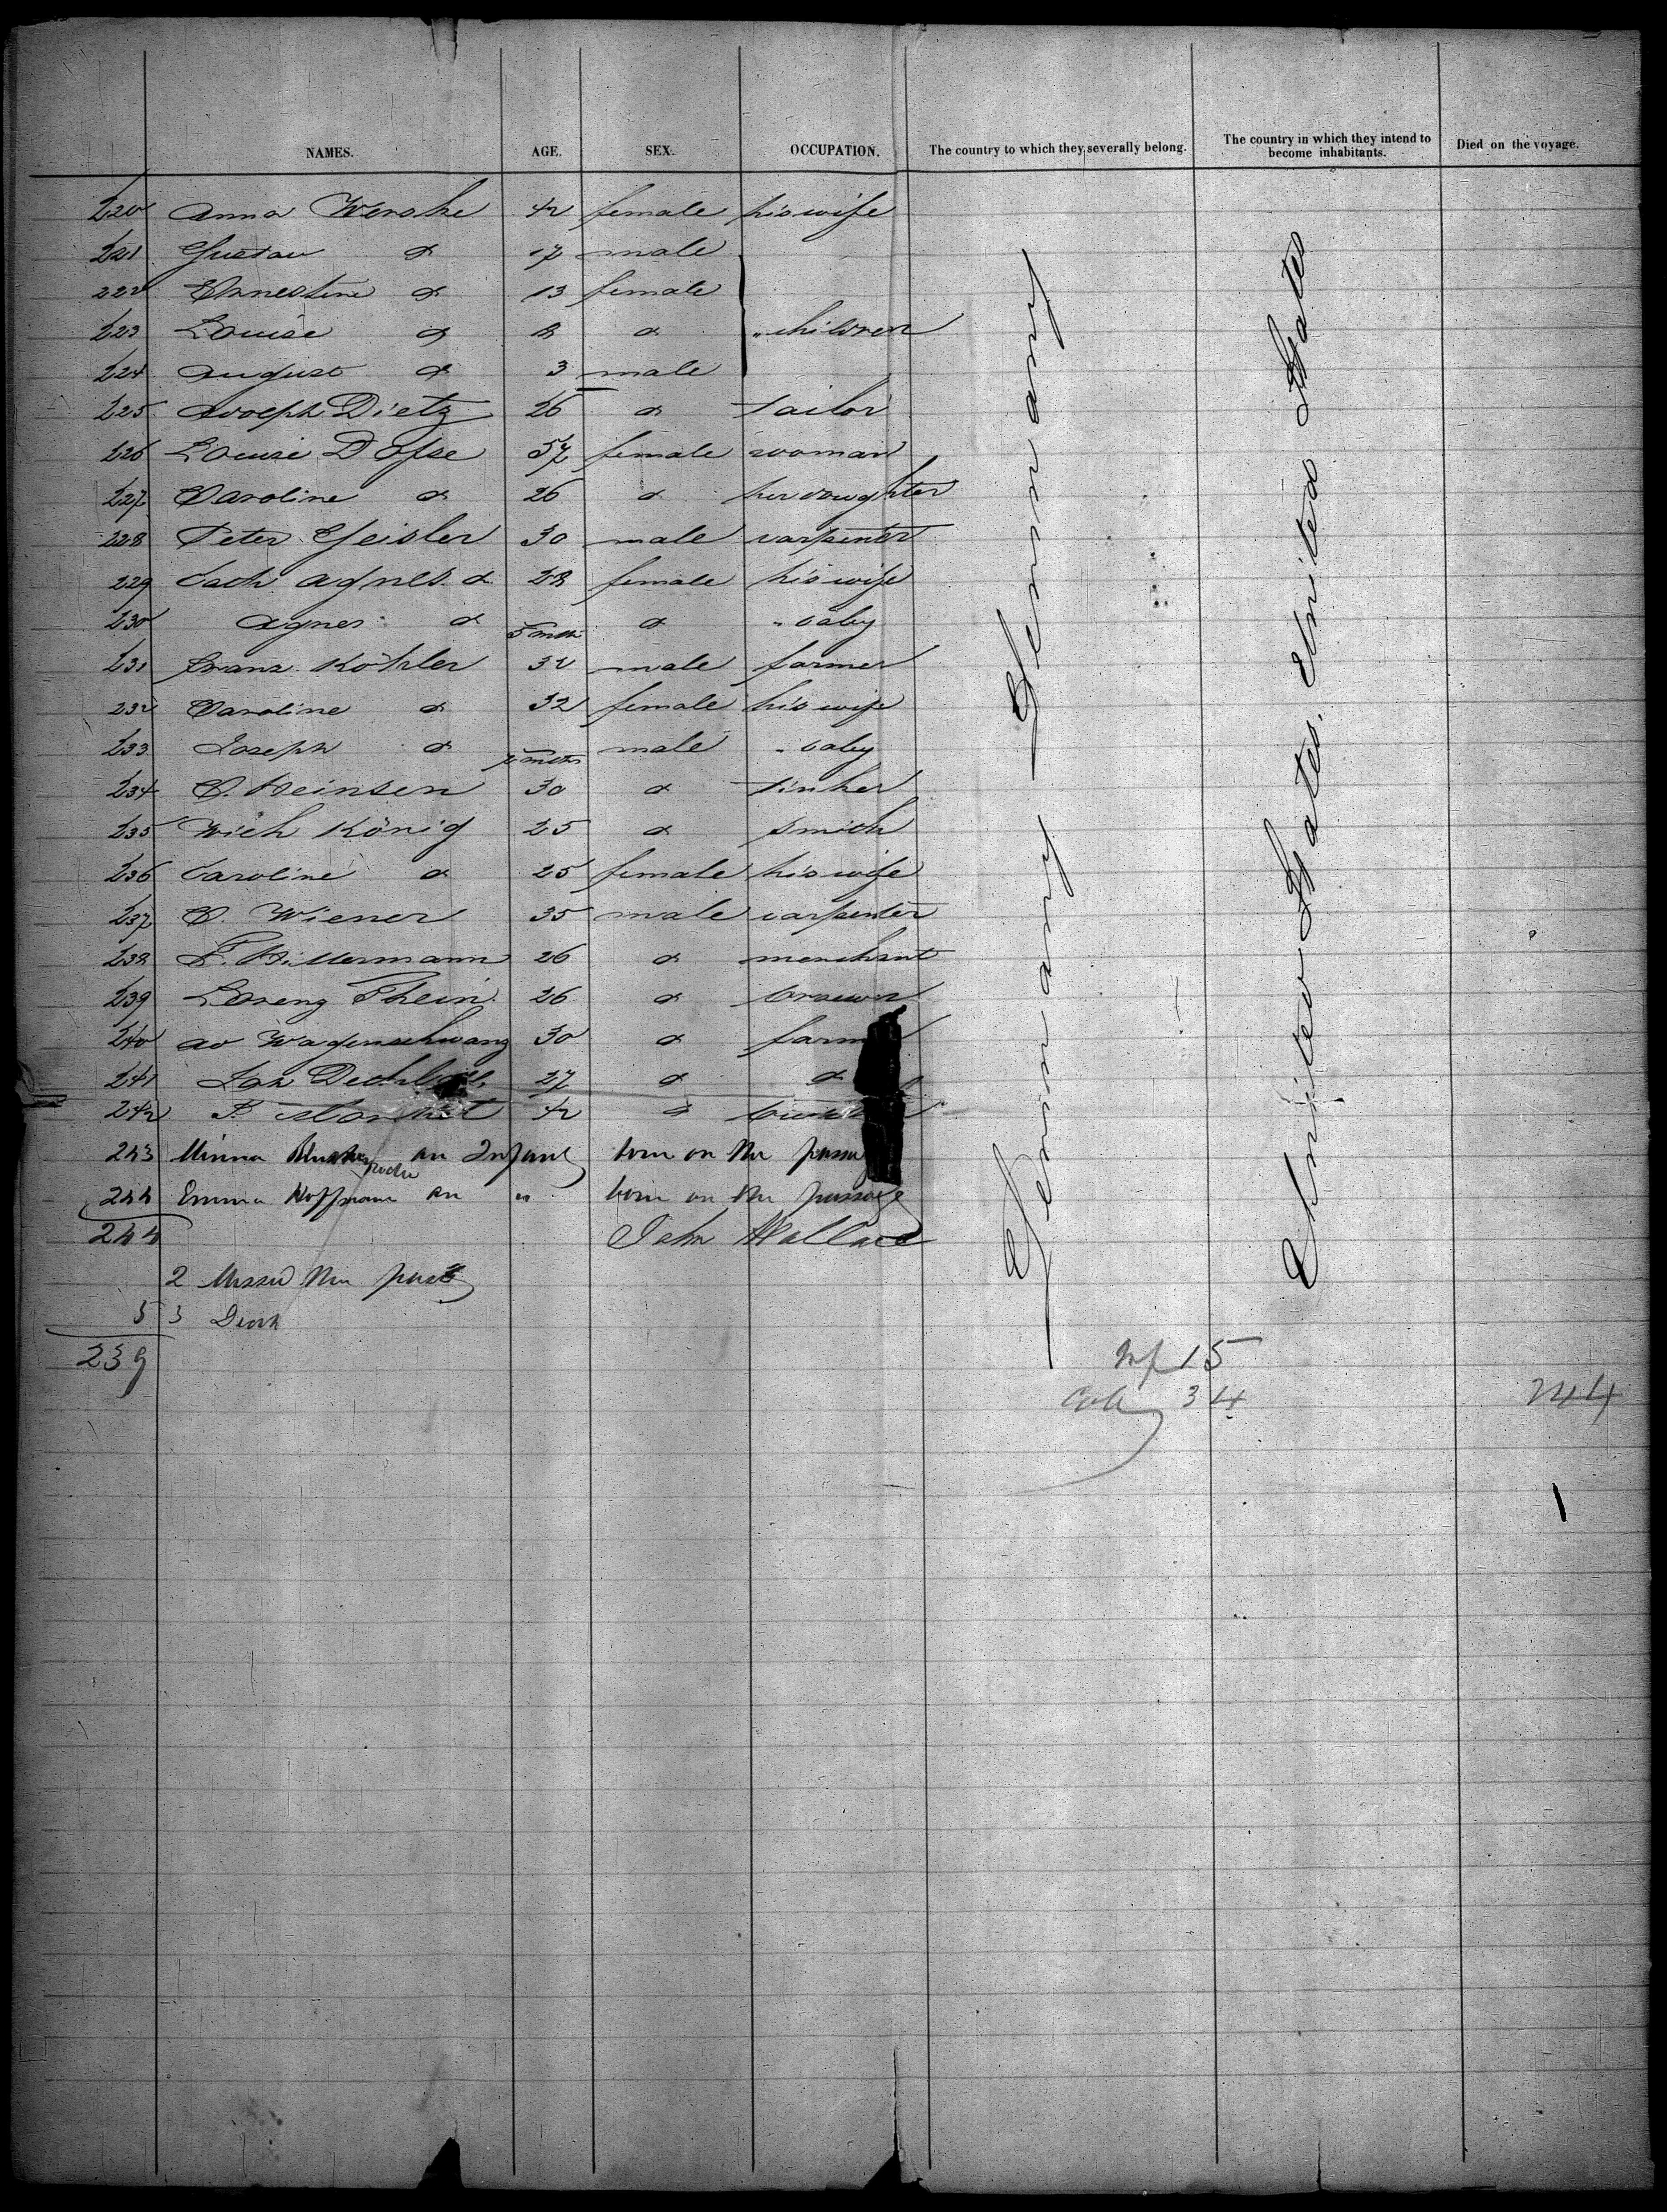 NAMES. AGE. SEX. OCCUPATION. The country to which they severally belong. The country in which they intend to become inhabitants. Died on the voyage.
220 Anna Werske 42 female his wife
221 Gustav do 17 male
222 Ernestine do 13 female
223 Louise do 8 do " children
224 August do 3 male
225 Adolph Dietz 26 do tailor
226 Louise 57 female woman
227 Caroline do 26 do her daughter
228 Peter Geisler 30 male carpenter
229 Cath Agnes do 28 female his wife
230 Agnes do 5 mths do " baby
231 Franz Köhler 32 male farmer
232 Caroline do 32 female his wife
233 Joseph do mths male " baby
234 C. Heinsen 30 do tinker
235 König 25 do smith
236 Caroline do 25 female his wife
237 C. Wiener 35 male carpenter
238 F. Hillermann 26 do merchant
239 Lorenz Thein 26 do brewer
240 Ad Wagenschwanz 30 do farm
241 Joh 27 do do
242 42 do
243 Minna an Infant born on the passa
244 Emma Hoffmann an " born on the passage
244 John Wallace
2 Missed the passg
5 3 Death
239
Germany Germany
United States. United States
Inf 15
34
244